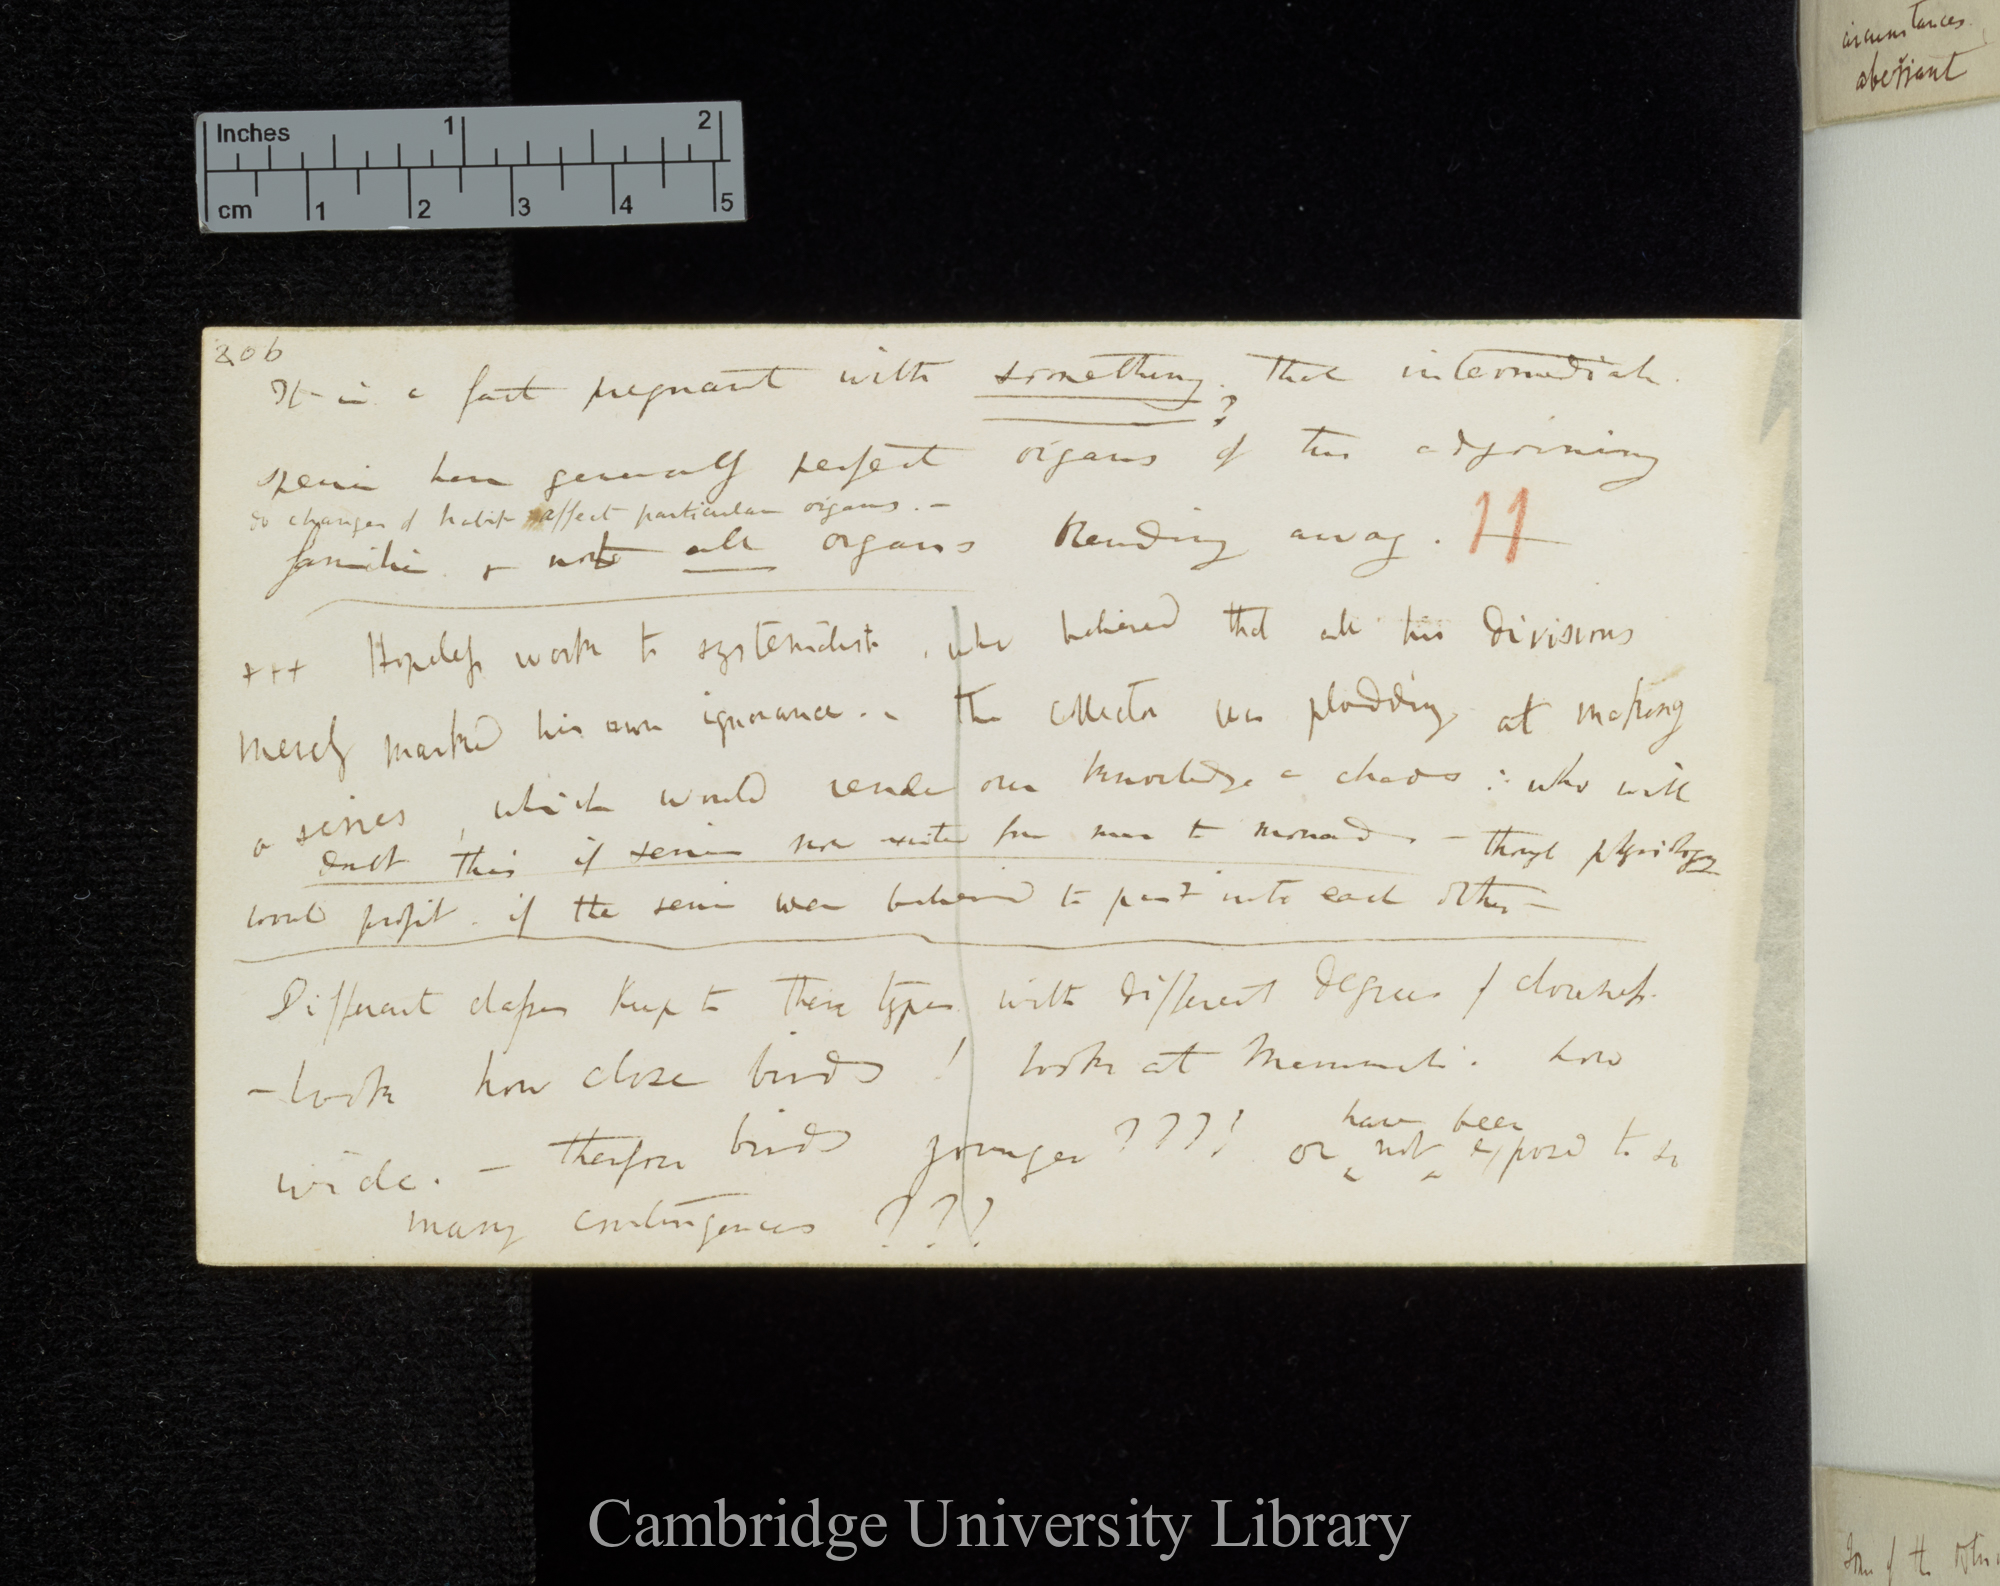 circumstances
aberrant
Inches 1 2
cm 1 2 3 4 5
206
It is a fact pregnant with something? that intermediate
species have generally perfect organs of the adjoining
do changes of habit affect particular organs. —
families & not all organs blending away. 11
+++ Hopeless work to systematist, who believed that all his divisions
merely marked his own ignorance. — The collector was plodding at making
a series, which would render our knowledge a chaos: who will
doubt this if series now existed from man to monad — though physiology
would profit. if the series were believed to past into each other —
Different classes keep to their types with different degrees of closeness.
— look how close birds! look at Mammalia. how
wide. — therefore birds younger ???! or
have been
not exposed to so
many contingences ???
of the other
Cambridge University Library